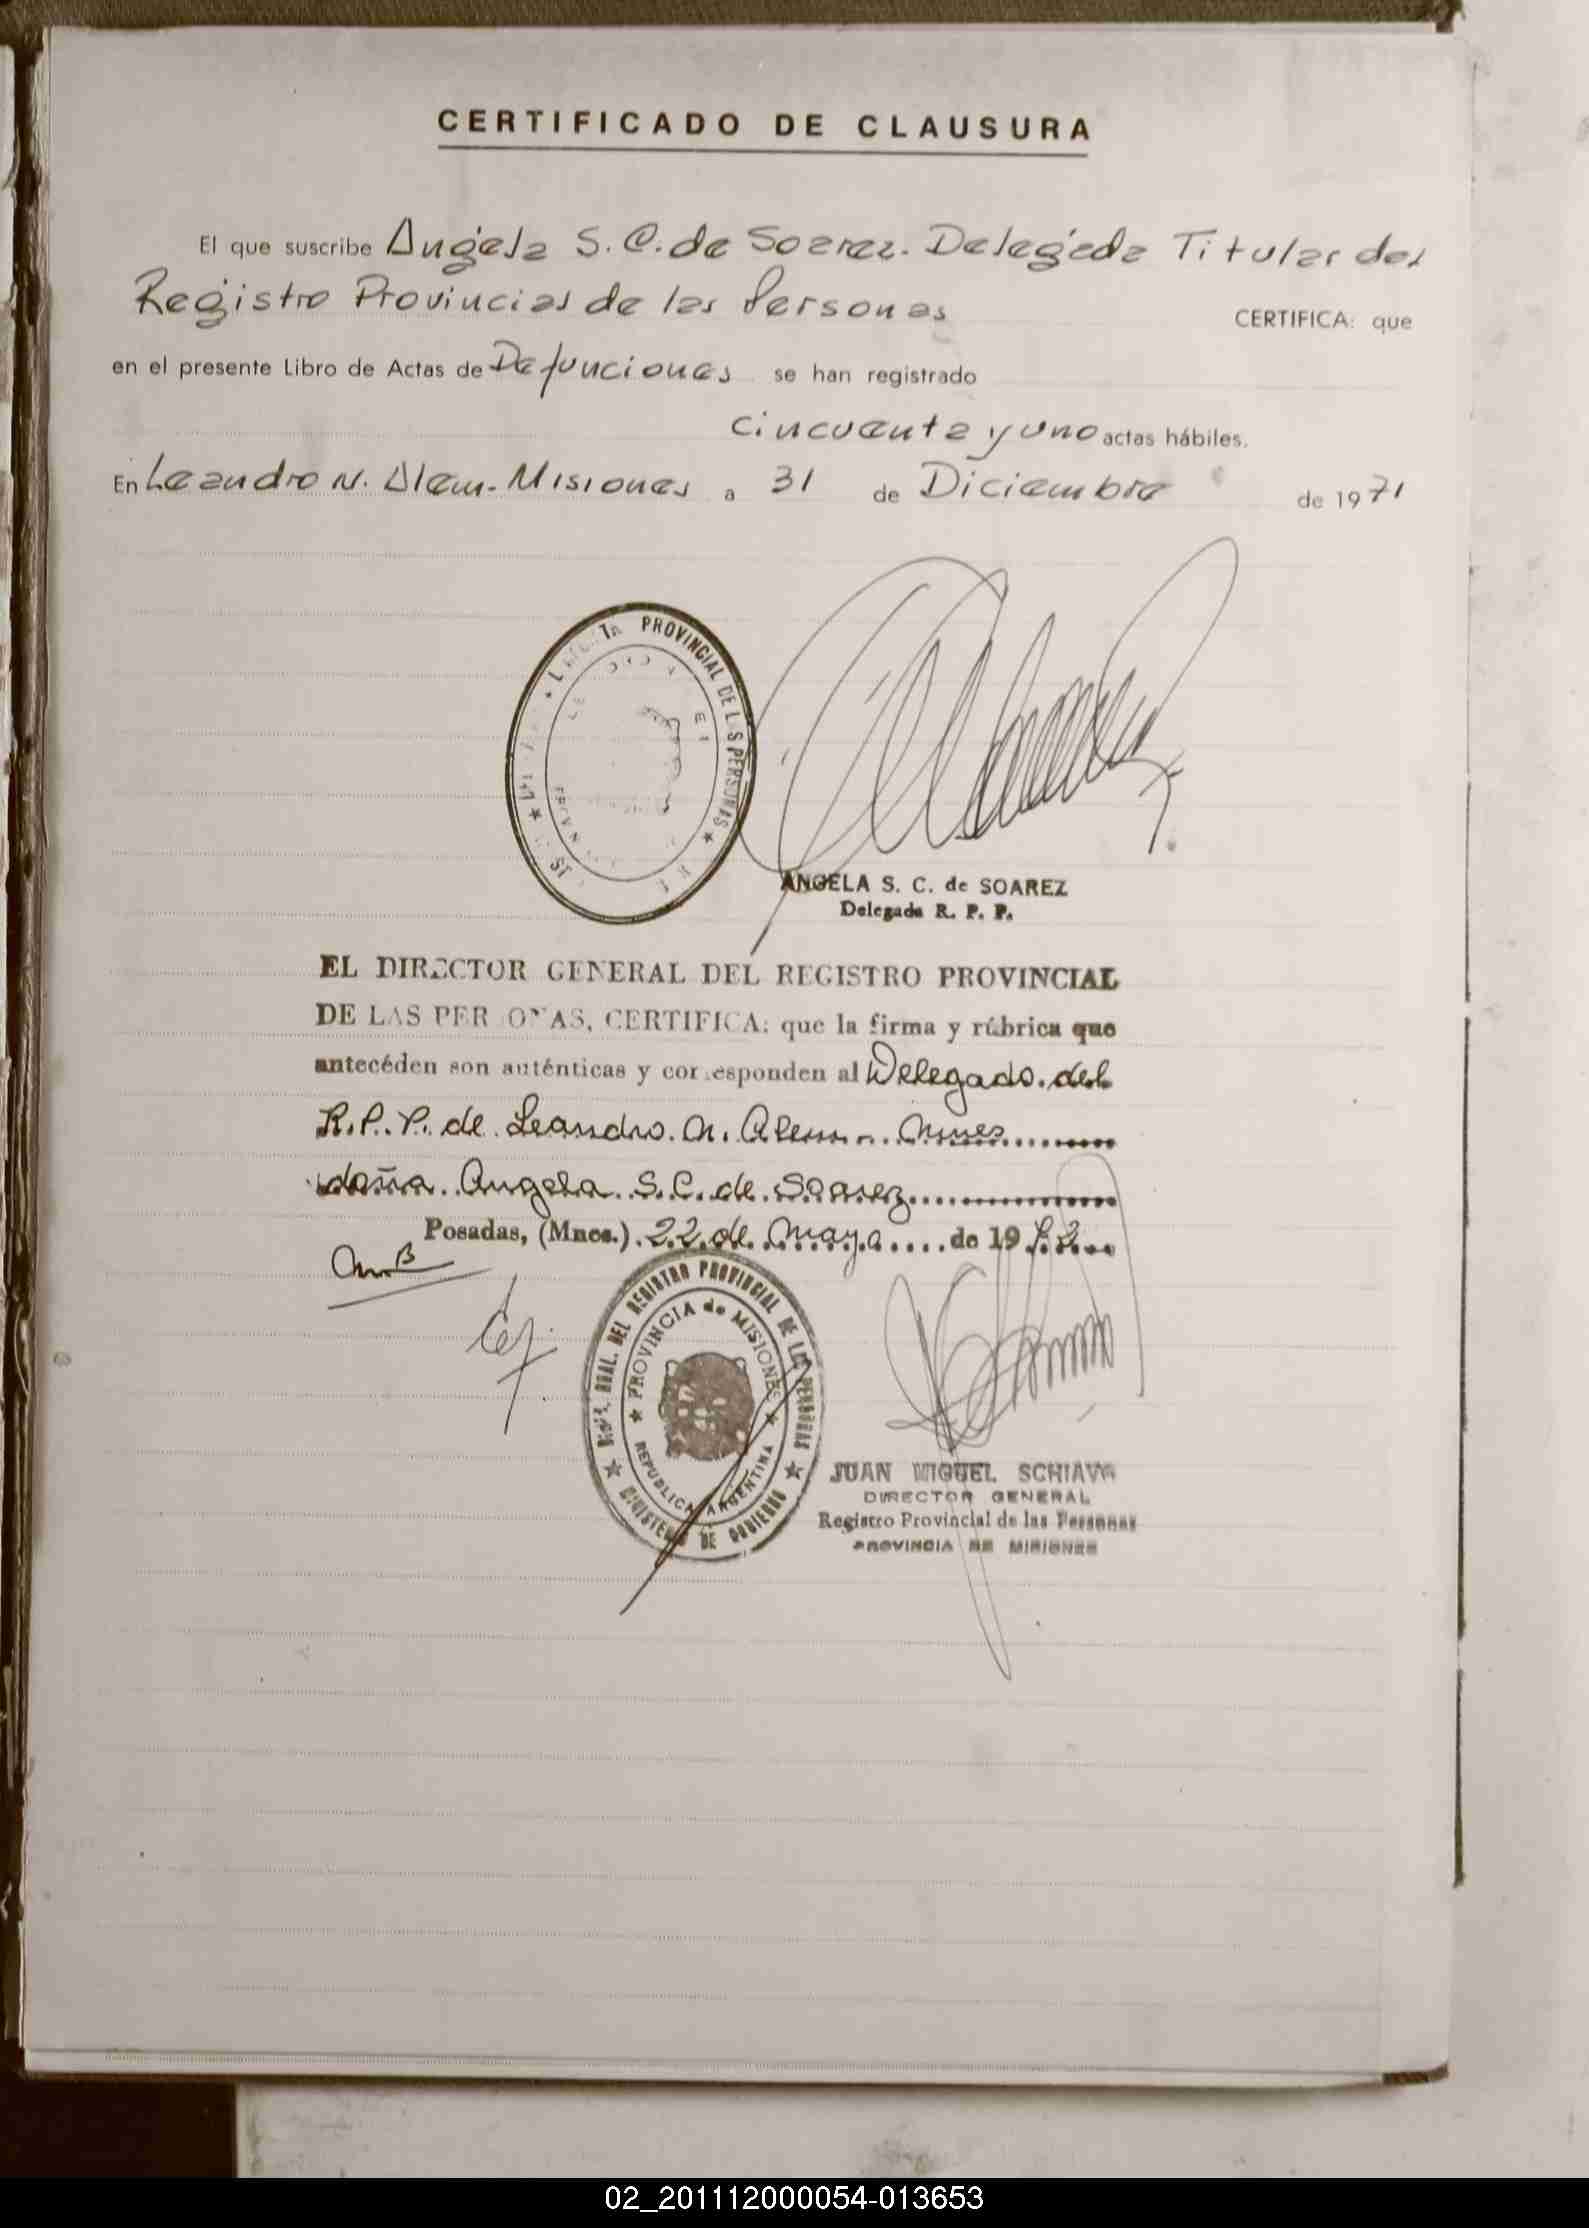 CERTIFICADO DE CLAUSURA
El que suscribe Angela S. C. de Soarez. Delegada Titular del
Registro Provincial de las Personas CERTIFICA: que
en el presente Libro de Actas de Defunciones se han registrado
cincuenta y uno actas hábiles.
En Leandro N. Alem - Misiones a 31 de Diciembre de 1971
PROVINCIAL DE LAS PERSONAS
ANGELA S. C. de SOAREZ
Delegada R. P. P.
EL DIRECTOR GENERAL DEL REGISTRO PROVINCIAL
DE LAS PERSONAS, CERTIFICA: que la firma y rúbrica que
antecéden son auténticas y corresponden al Delegado del
R.P.P. de Leandro N. Alem - Mnes
doña Angela S.C. de Soarez
Posadas, (Mnes.) 22 de Mayo de 19
DEL REGISTRO PROVINCIAL DE LAS PERSONAS
PROVINCIA de MISIONES
REPUBLICA ARGENTINA
MINISTERIO DE GOBIERNO
JUAN MIGUEL SCHIAVO
DIRECTOR GENERAL
Registro Provincial de las Personas
PROVINCIA DE MISIONES
02_201112000054-013653